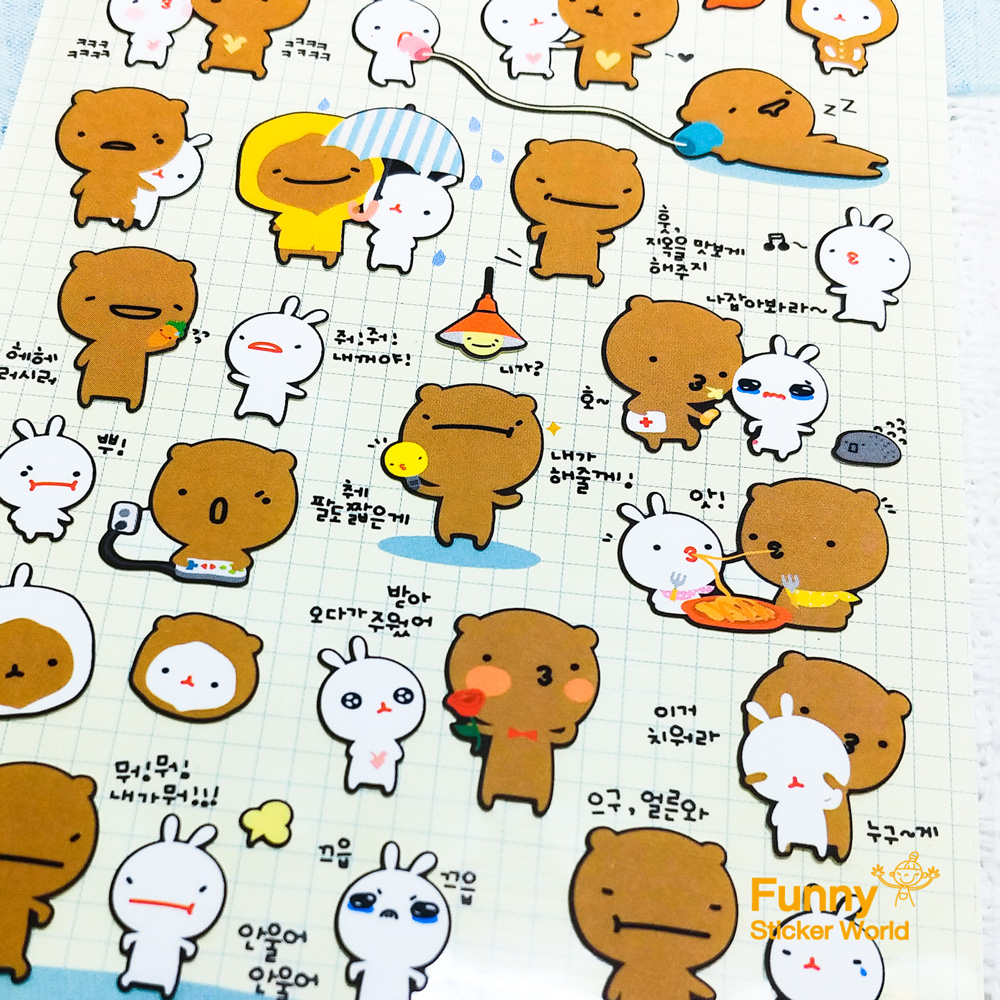 ㅋㅋㅋ
ㅋㅋㅋㅋ
ㅋㅋㅋㅋ
ㅋㅋㅋㅋ
zZ
훗,
지옥을 맛보게
해주지
나잡아봐라~
헤헤
러시러
줘!줘!
내꺼야!
니가?
호~
뿌!
췌
팔도짧은게
내가
해줄께!
앗!
받아
오다가주웠어
이거
치워라
누구~게
뭐!뭐!
내가뭐!!!
끄읍
끄읍
안울어
안울어
으구, 얼른와
Funny
Sticker World